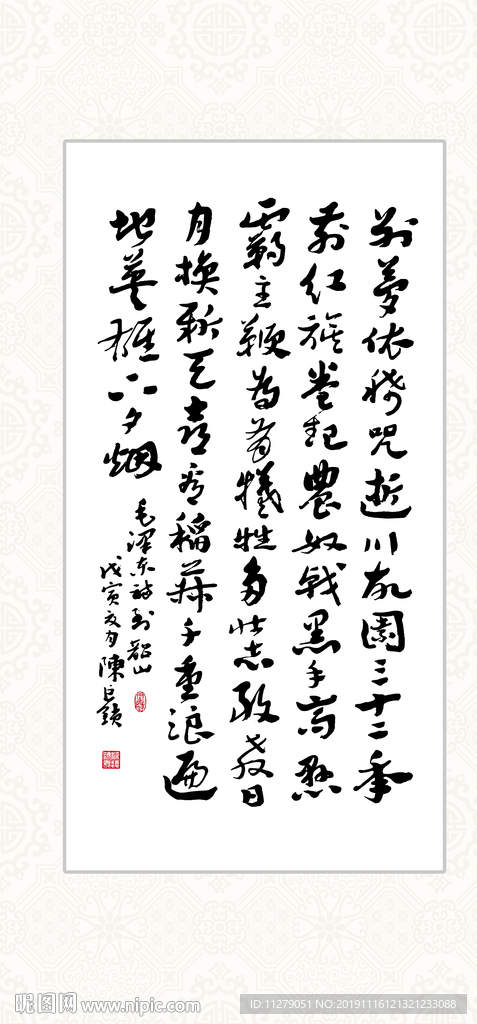 别梦依稀咒逝川故園三十二年
前红旗卷起農奴戟黑手高懸
霸主鞭為有犧牲多壮志敢教日
月换新天喜看稻菽千重浪遍
地英雄下夕烟
毛澤东詩到韶山
戊寅夏月陳巨鎖
昵图网 www.nipic.com
ID:11279051 NO:20191116121321233088